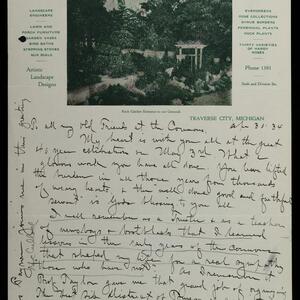 LANDSCAPE
ENGINEERS
LAWN AND
PORCH FURNITURE
GARDEN VASES
BIRD BATHS
STEPPING STONES
SUN DIALS
Artistic
Landscape
Designs
EVERGREENS
ROSE COLLECTIONS
SHRUB BORDERS
PERENNIAL PLANTS
ROCK PLANTS
THIRTY VARIETIES
OF HARDY
ROSES
Phone 1381
Sixth and Division Sts.
Rock Garden Entrance to our Grounds
TRAVERSE CITY, MICHIGAN
To all my Old Friends at the Commons.
34
My heart is with you all at the great
40 year celebration May 3rd. What a
glorious work you have all done. You have lifted
the burden in all those years from thousands
of weary hearts, & the "well done good and faithful
servant" is Gods blessing to you all.
I well remember as a Trustee & as a teacher
of newsboys & bootblacks that I learned
lessons in the early years of the Commons
that shaped my life for a real sympathy
those who have
Prof. Taylor gave me that job of